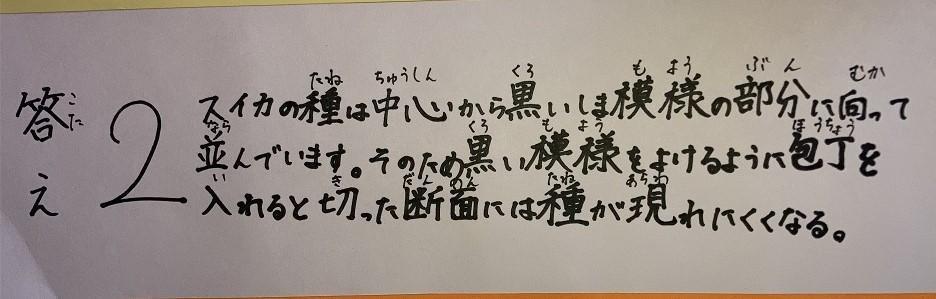 答え 2
スイカの種は中心から黒いしま模様の部分に向って
並んでいます。そのため黒い模様をよけるように包丁を
入れると切った断面には種が現れにくくなる。